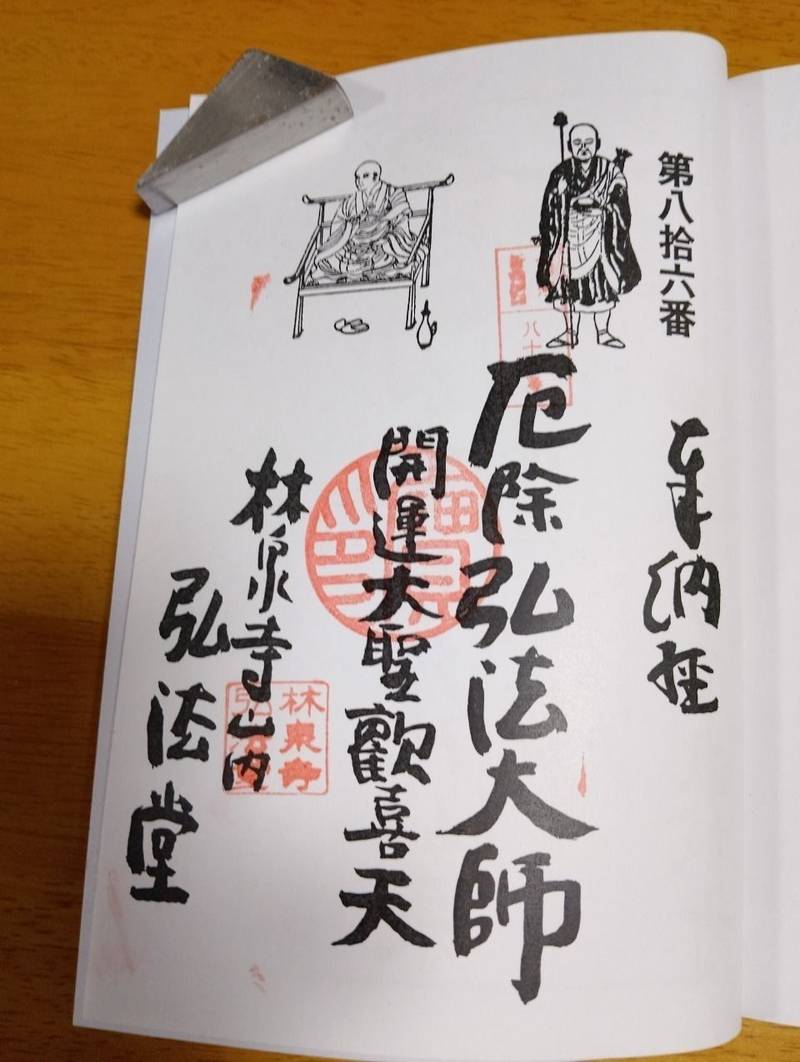 第八拾六番
奉納経
厄除弘法大師
開運大聖歓喜天
林泉寺山内
弘法堂
八十
林泉寺